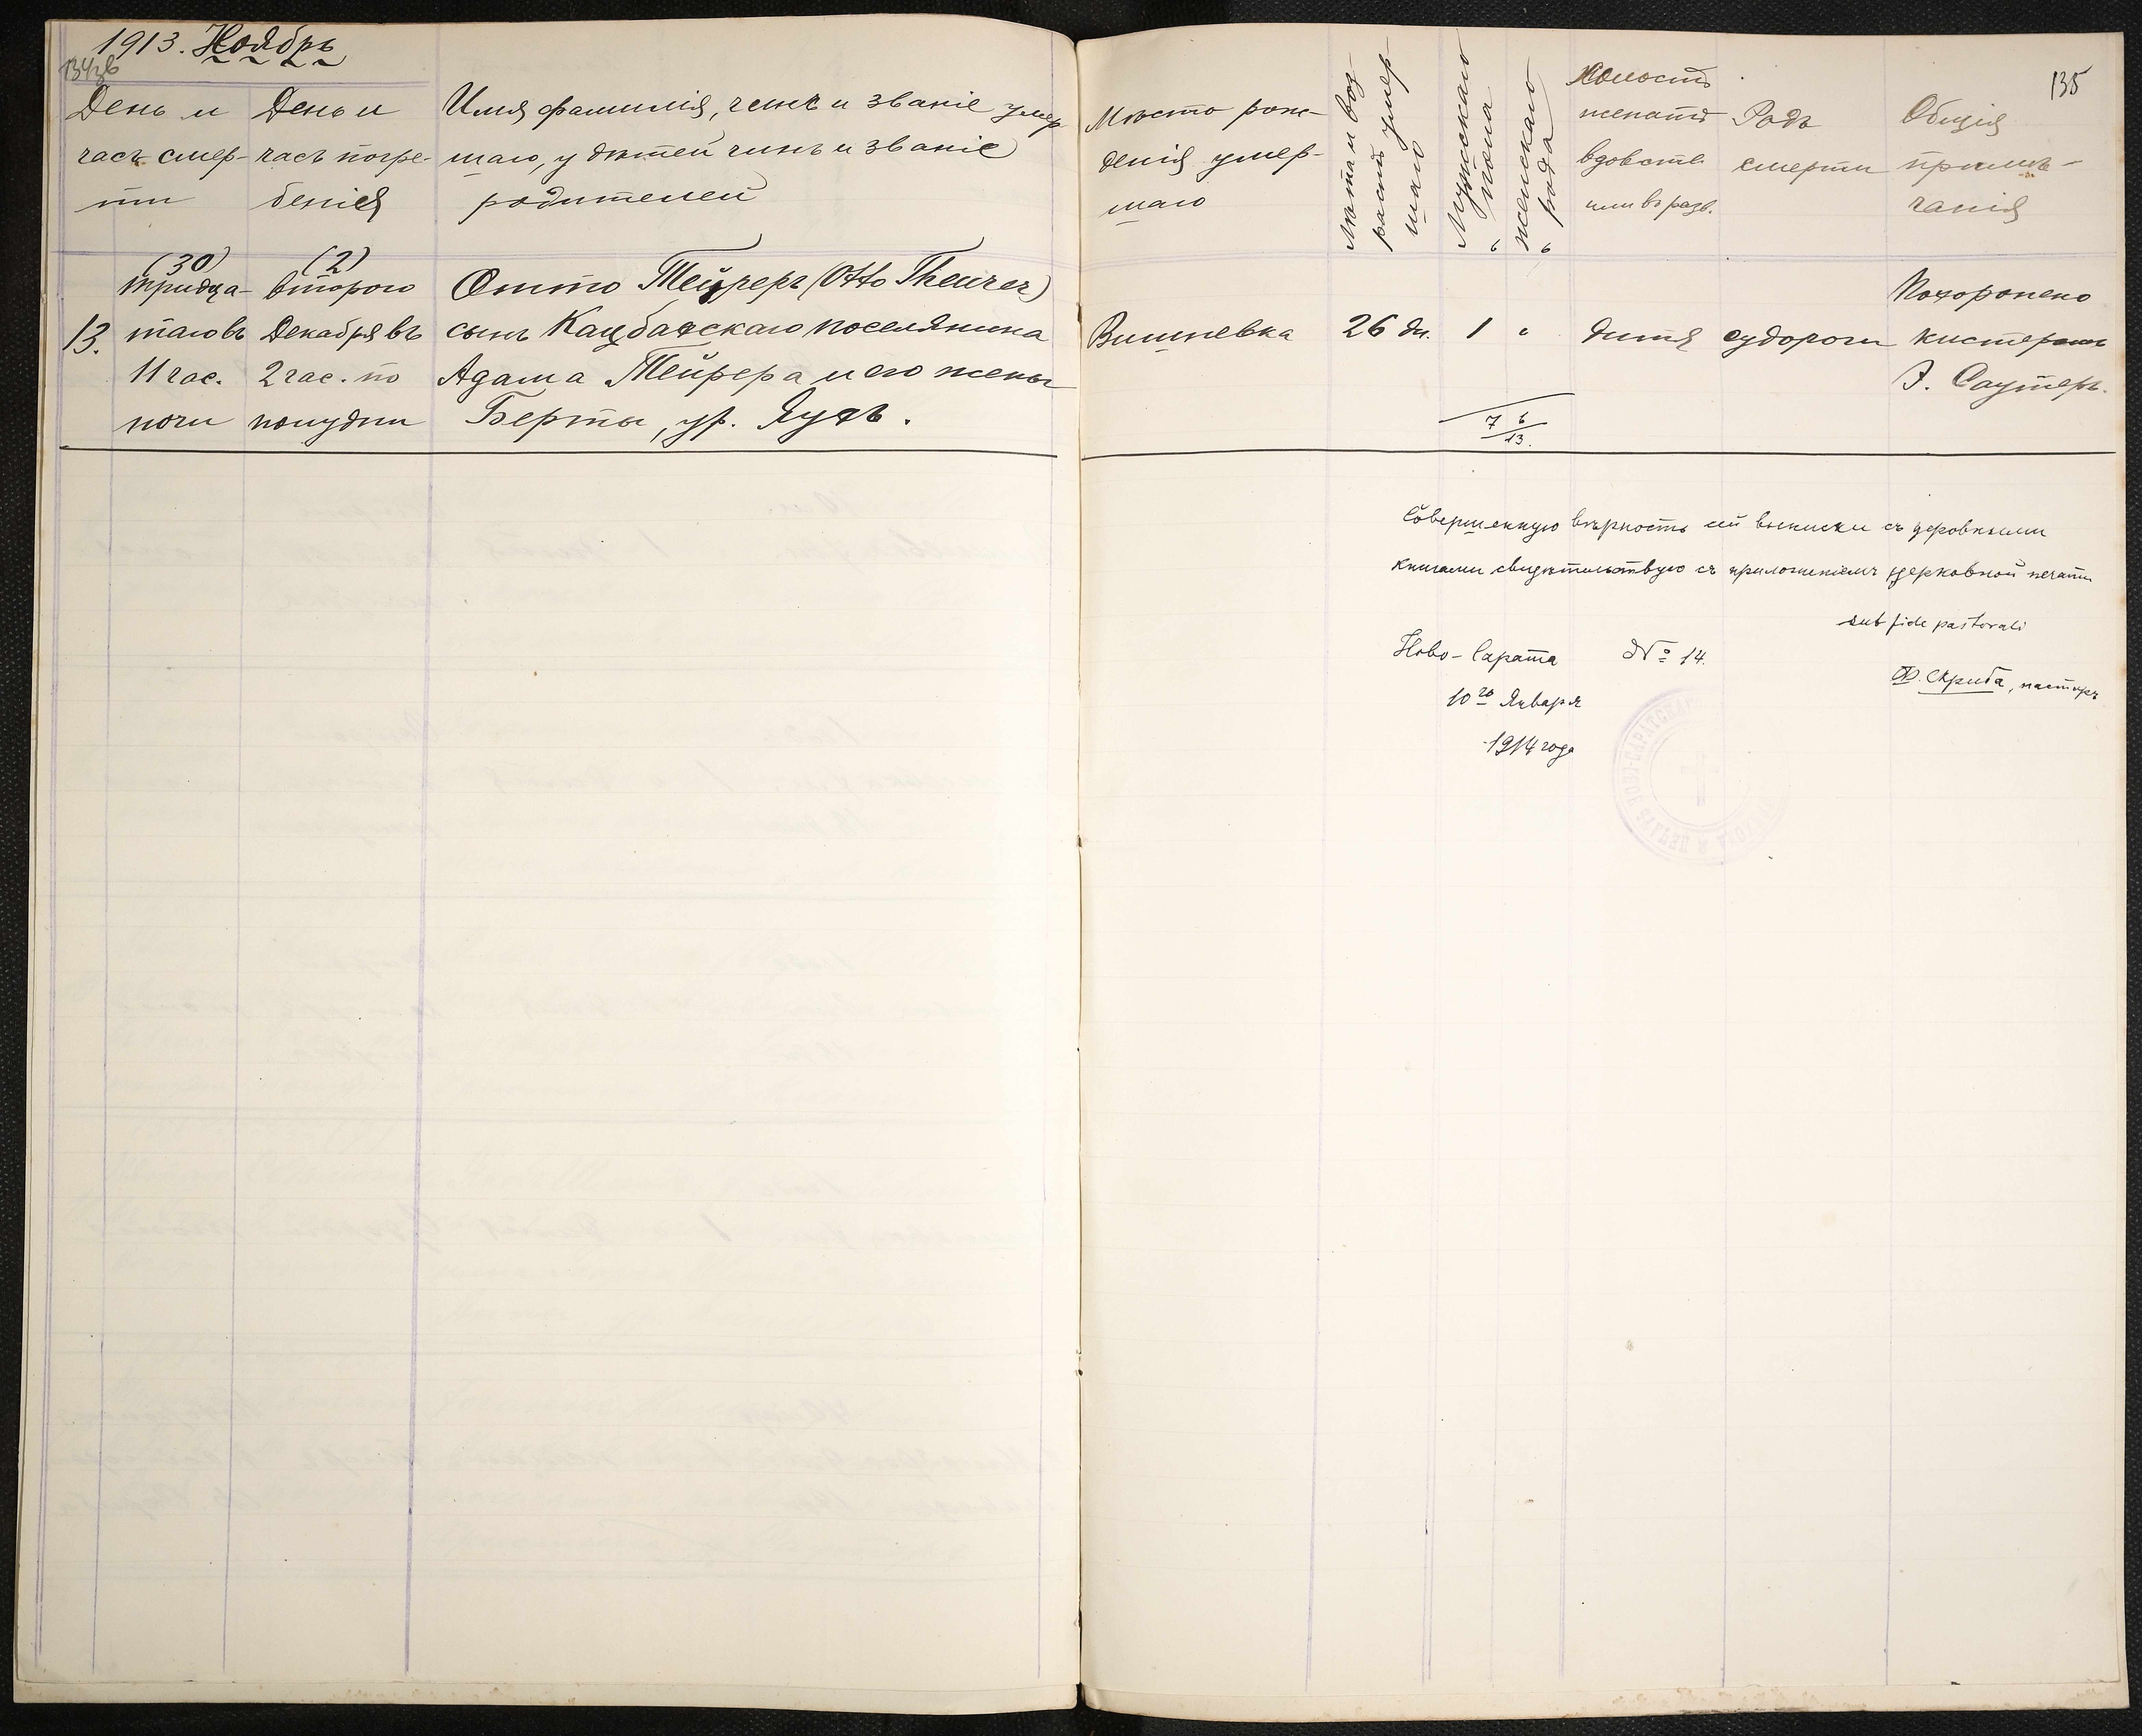 1913. Ноябрь
День и
часъ смер-
ти
День и
часъ погре-
бенія
Имя фамилія, чинъ и званіе умер
шаго, у дѣтей чинъ и званіе
родителей
Мѣсто рож-
денія умер-
шаго
Лѣта и воз-
растъ умер-
шаго
Мужскаго
пола
женскаго
Холостъ
женатъ
вдовств.
или въ разв.
Родъ
смерти
Общія
примѣ-
чанія
135
13.
(30)
тридца-
таго въ
11 час.
ночи
(2)
второго
Декабря въ
2 час. по
полудни
Отто Тейреръ (Otto Theurer)
сынъ Кацбахскаго поселянина
Адама Тейрера и его жены
Берты, ур. Яухъ.
Вишневка
26 дн.
1
"
дитя
судороги
Похоронено
кистеромъ
Э. Саутеръ.
7 6
13.
Совершенную вѣрность сей выписки съ церковными
книгами свидѣтельствую съ приложеніемъ церковной печати
sub fide pastorali
Ново-Сарата № 14.
Ф. Скриба, пасторъ
10го Января
1914 года